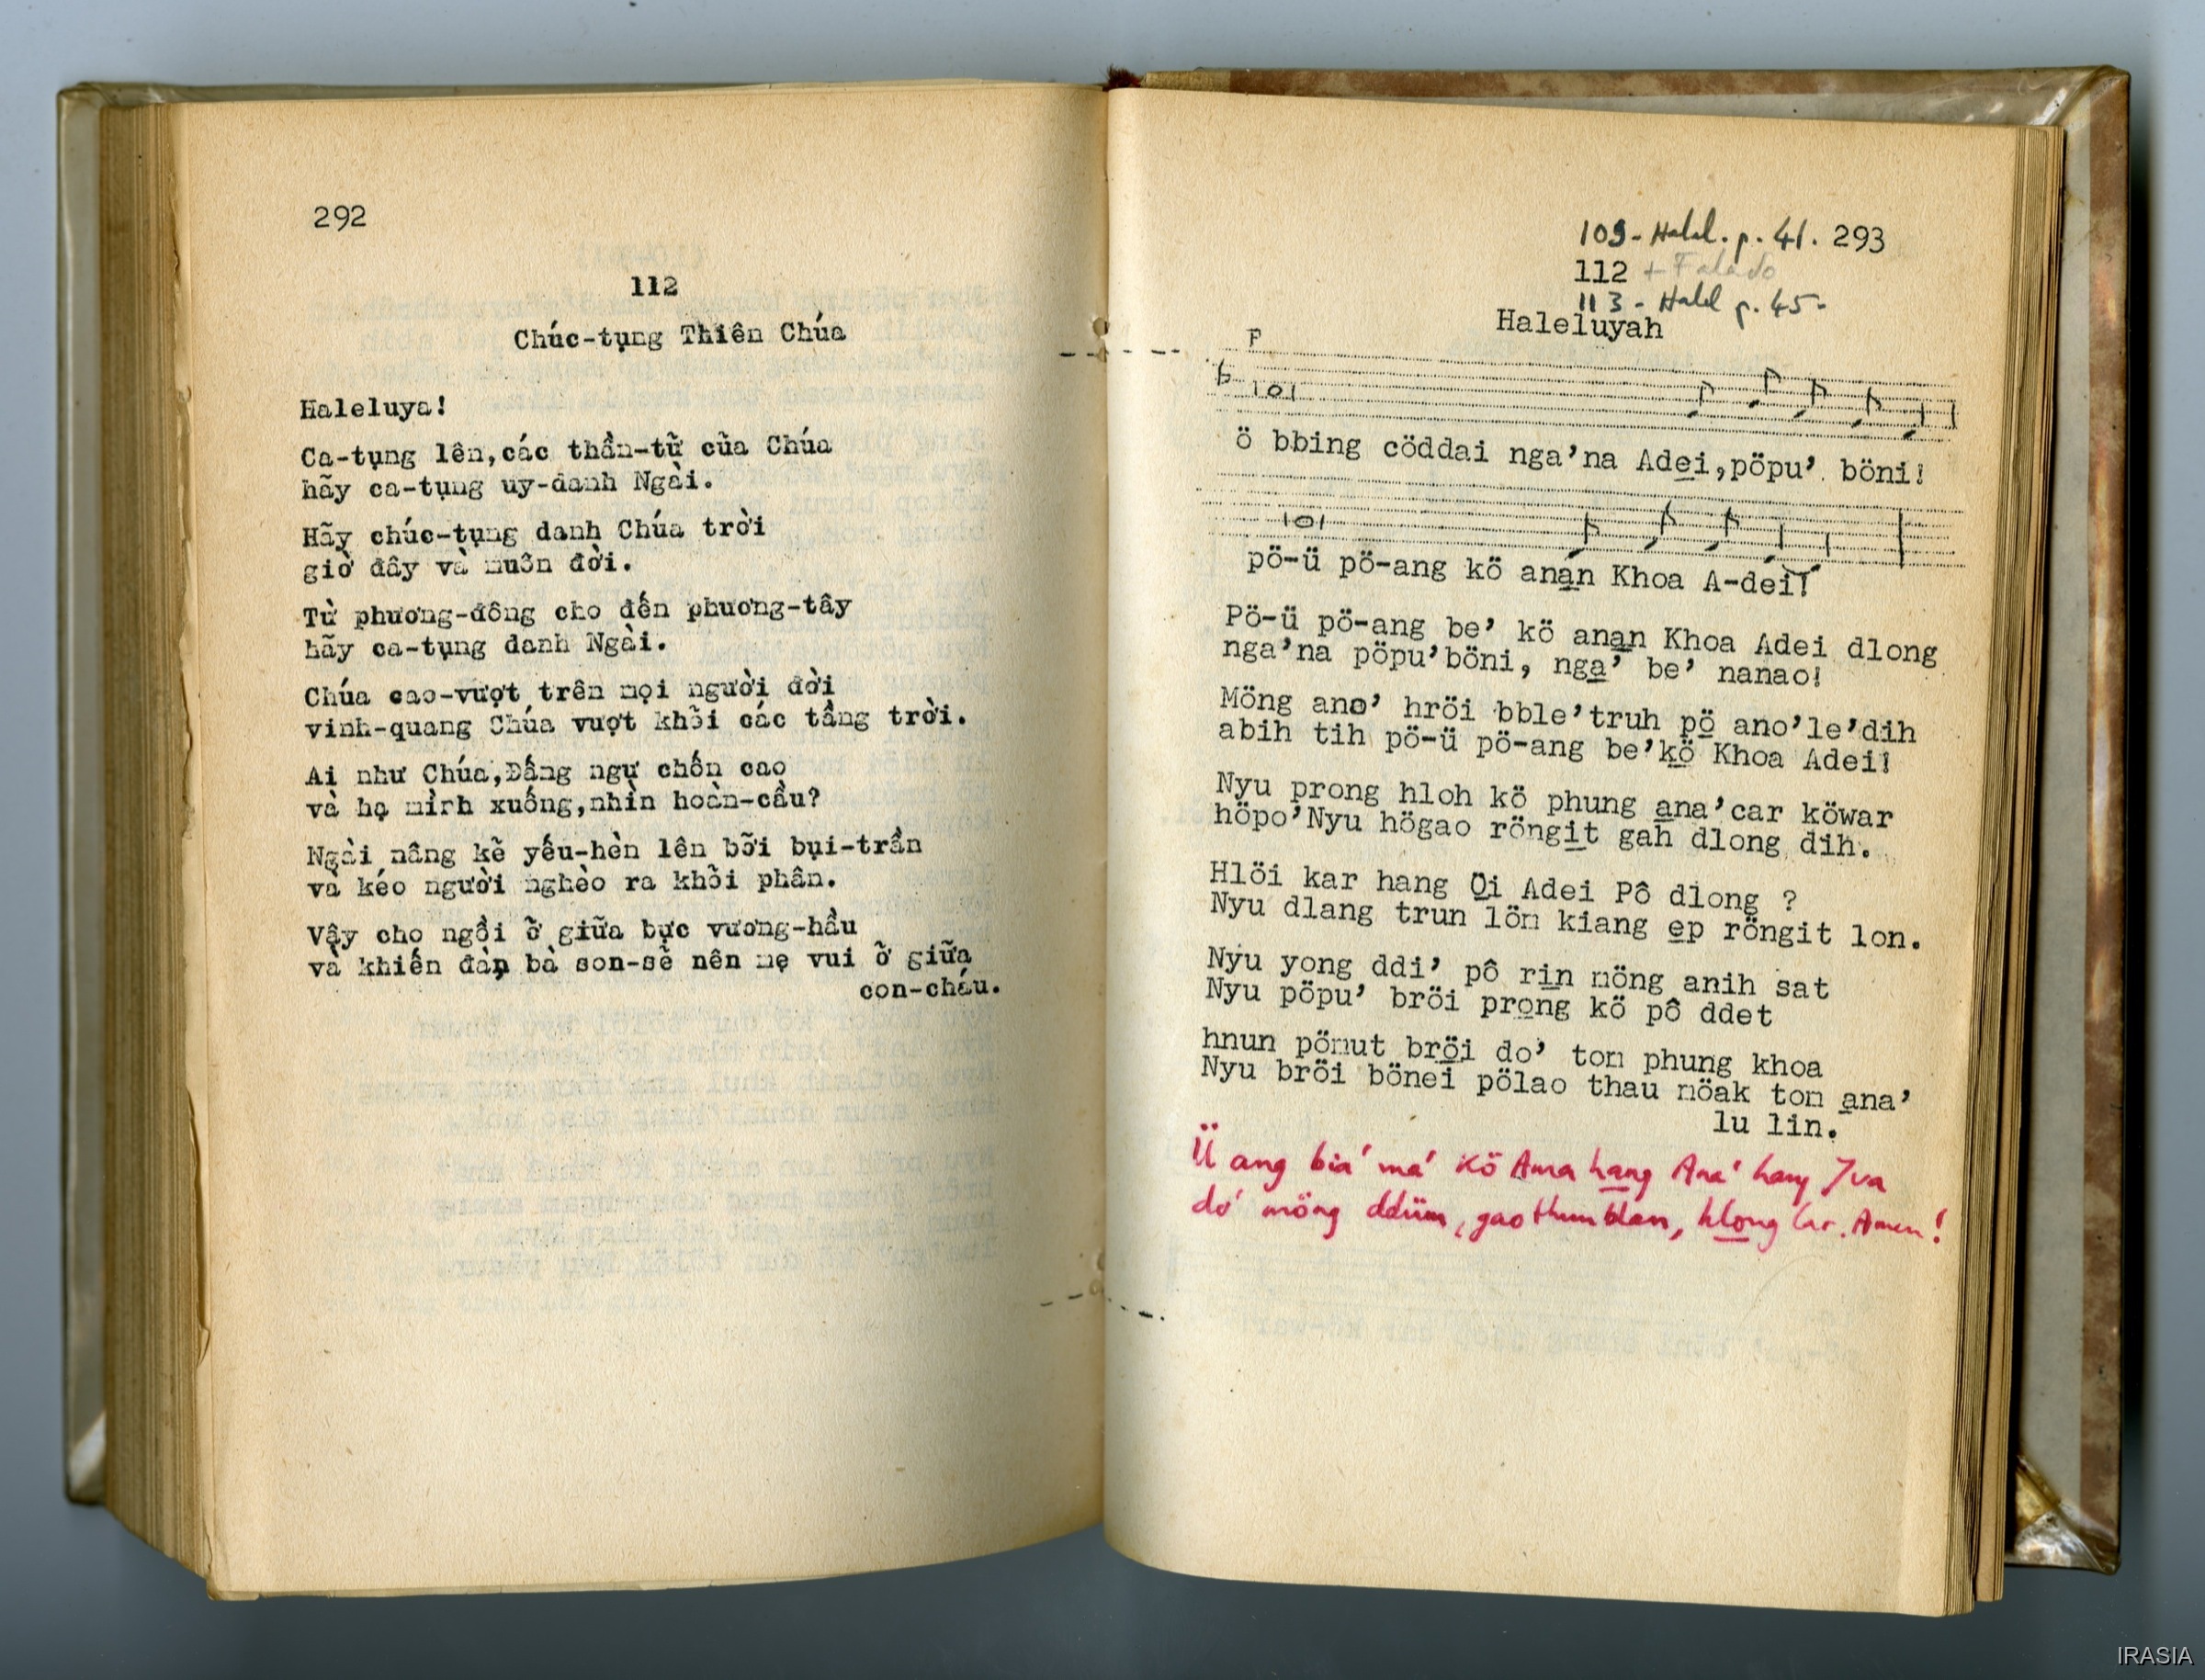 292
112
Chúc-tụng Thiên Chúa
Haleluya!
Ca-tụng lên,các thần-tữ cũa Chúa
hãy ca-tụng uy-danh Ngài.
Hãy chúc-tụng danh Chúa trời
giờ đây và muôn đời.
Từ phương-đông cho đến phương-tây
hãy ca-tụng danh Ngài.
Chúa cao-vượt trên mọi người đời
vinh-quang Chúa vượt khõi các tầng trời.
Ai như Chúa,Đấng ngự chốn cao
và hạ mình xuống,nhìn hoàn-cầu?
Ngài nâng kẽ yếu-hèn lên bỡi bụi-trần
và kéo người nghèo ra khõi phân.
Vậy cho ngồi ỡ giữa bực vương-hầu
và khiến đàn bà son-sẽ nên mẹ vui ỡ giữa
con-cháu.
109- Halel. p. 41. 293
112 + Falado
113 - Halel p. 45-
Haleluyah
F
ö bbing cöddai nga’na Adei,pöpu’ böni!
pö-ü pö-ang kö anan Khoa A-dei!
Pö-ü pö-ang be’ kö anan Khoa Adei dlong
nga’na pöpu’böni, nga’ be’ nanao!
Möng ano’ hröi bble’truh pö ano’le’dih
abih tih pö-ü pö-ang be’kö Khoa Adei!
Nyu prong hloh kö phung ana’car köwar
höpo’Nyu högao röngit gah dlong dih.
Hlöi kar hang Oi Adei Pô dlong ?
Nyu dlang trun lön kiang ep röngit lon.
Nyu yong ddi’ pô rin möng anih sat
Nyu pöpu’ bröi prong kö pô ddet
hnun pömut bröi do’ tom phung khoa
Nyu bröi bönei pölao thau möak tom ana’
lu lin.
Ü ang bia’ ma’ kö Ama hang Ana’ hang Iva
do’ möng ddüm, gao thun blan, hlong lar. Amen!
IRASIA